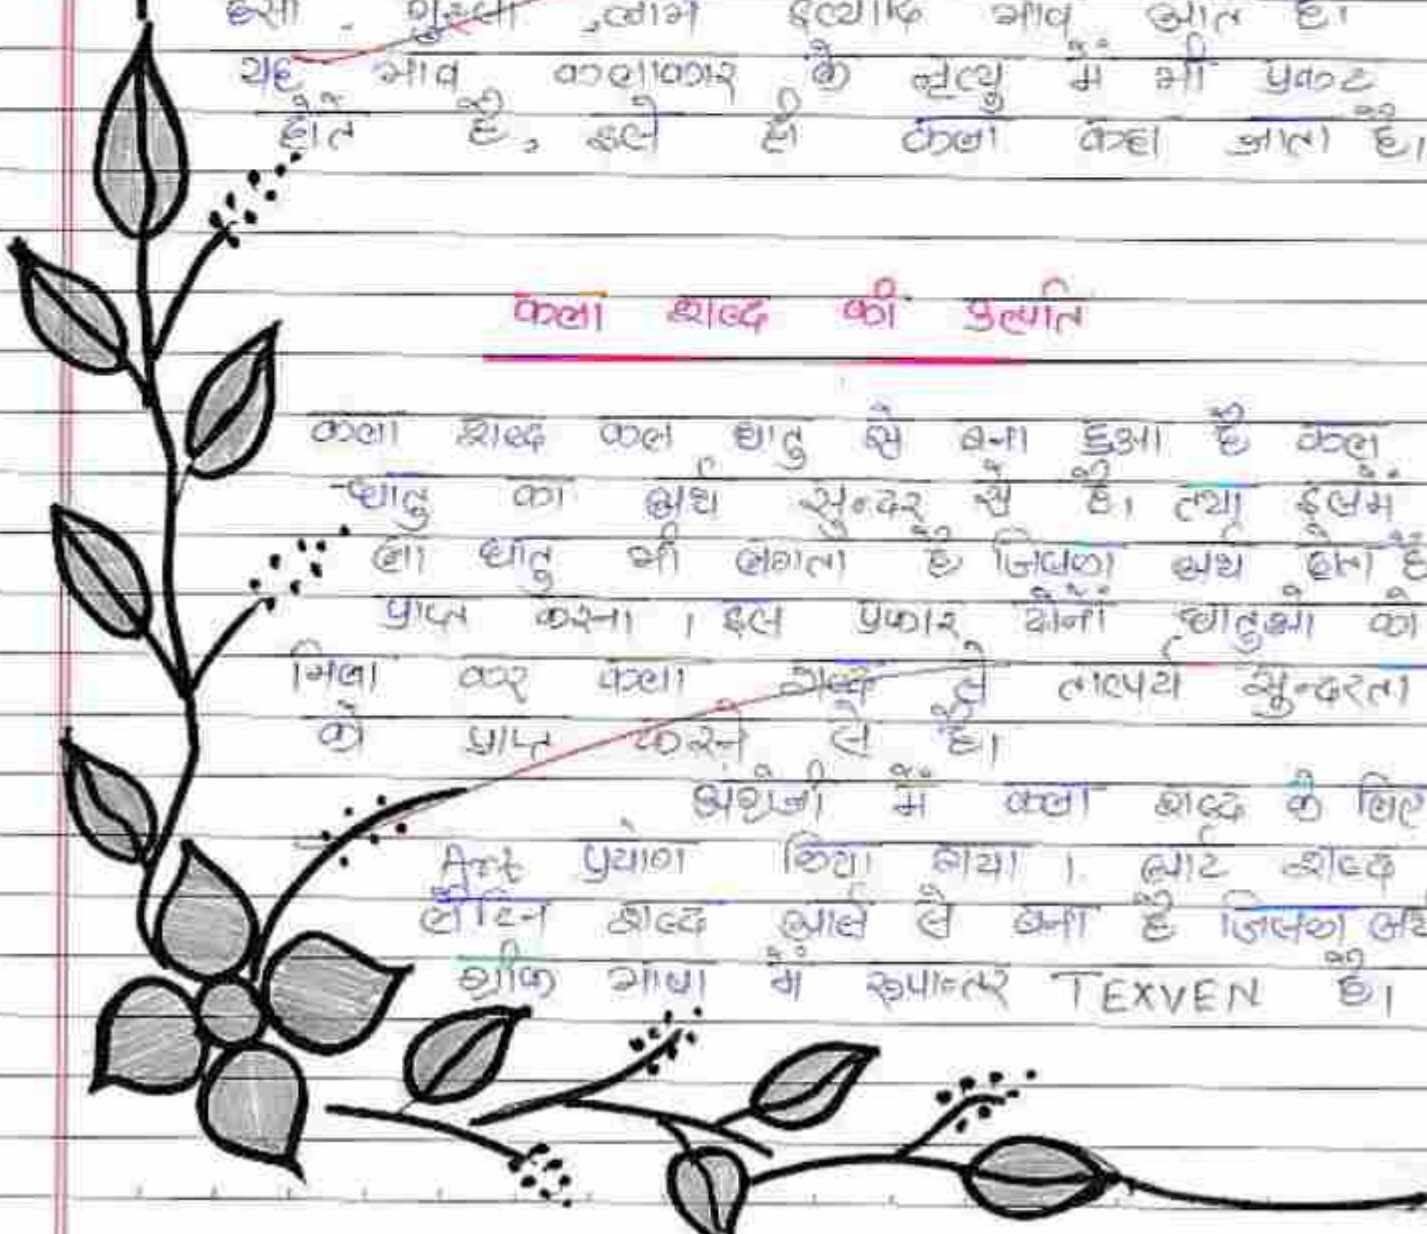 गुस्सा, लोभ इत्यादि भाव आते है।
यह भाव कलाकार के नृत्य में भी प्रकट
होते हैं, इसे ही कला कहा जाता है।
कला शब्द की उत्पति
कला शब्द कल धातु से बना हुआ है कल
धातु का अर्थ सुन्दर से है। तथा इसमें
ला धातु भी लगता है जिसका अर्थ होता है
प्राप्त करना । इस प्रकार दोनों धातुओ को
मिला कर कला शब्द से तात्पर्य सुन्दरता
को प्राप्त करने से है।
अंग्रेजी में कला शब्द के लिए
Art प्रयोग किया गया । आर्ट शब्द
लैटिन शब्द आर्स से बना है जिसका अर्थ
ग्रीक भाषा में रूपान्तर TEXVEN है।